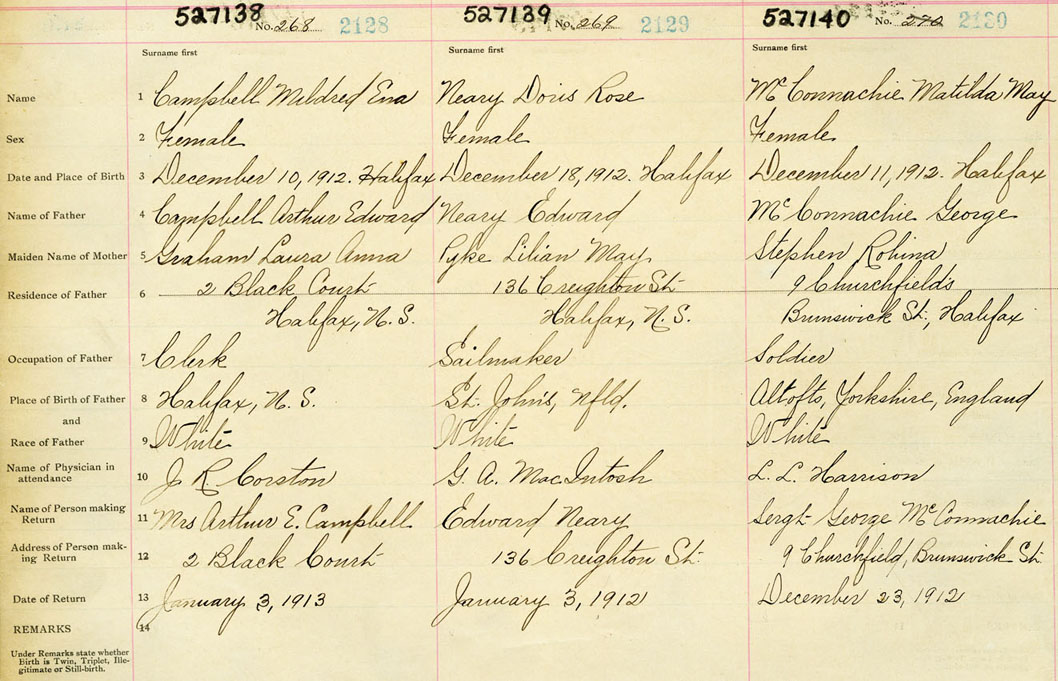 527138 No. 268 2128 527139 No. 269 2129 527140 No. 270 2130
Surname first Surname first Surname first
Name 1 Campbell Mildred Ena Neary Doris Rose McConnachie Matilda May
Sex 2 Female Female Female
Date and Place of Birth 3 December 10, 1912. Halifax December 18, 1912. Halifax December 11, 1912. Halifax
Name of Father 4 Campbell Arthur Edward Neary Edward McConnachie George
Maiden Name of Mother 5 Graham Laura Anna Pyke Lilian May Stephen Robina
Residence of Father 6 2 Black Court 136 Creighton St. 9 Churchfields
Halifax, N.S. Halifax, N.S. Brunswick St., Halifax
Occupation of Father 7 Clerk Sailmaker Soldier
Place of Birth of Father 8 Halifax, N.S. St. Johns, Nfld. Altofts, Yorkshire, England
and
Race of Father 9 White White White
Name of Physician in
attendance 10 J R Corston G. A. MacIntosh L. L. Harrison
Name of Person making
Return 11 Mrs Arthur E. Campbell Edward Neary Sergt George McConnachie
Address of Person mak-
ing Return 12 2 Black Court 136 Creighton St. 9 Churchfield, Brunswick St.
Date of Return 13 January 3, 1913 January 3, 1912 December 23, 1912
REMARKS 14
Under Remarks state whether
Birth is Twin, Triplet, Ille-
gitimate or Still-birth.